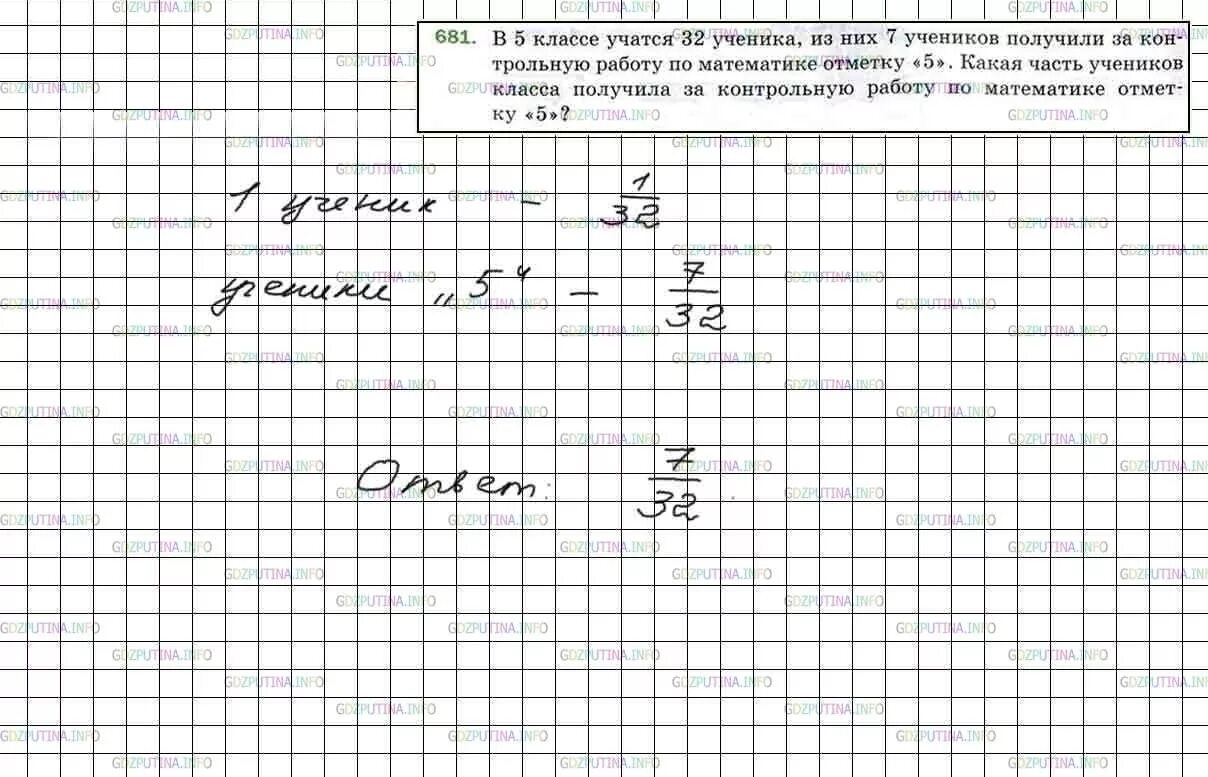 681. В 5 классе учатся 32 ученика, из них 7 учеников получили за кон-
трольную работу по математике отметку «5». Какая часть учеников
класса получила за контрольную работу по математике отмет-
ку «5»?
1 ученик – 1/32
ученики „5“ – 7/32
Ответ: 7/32.
GDZPUTINA.INFO